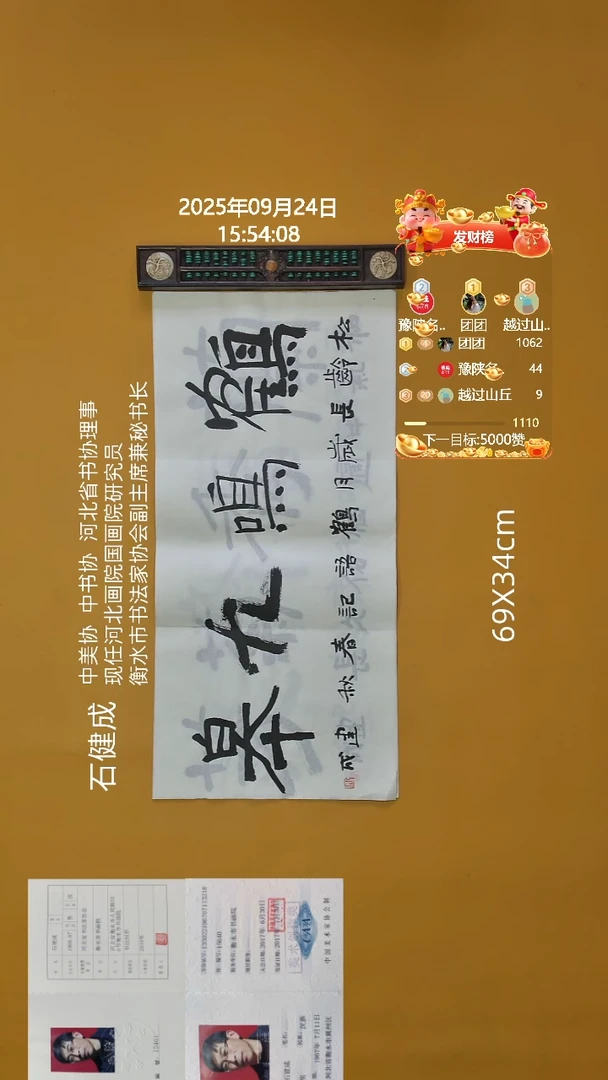 2025年09月24日
15:54:08
发财榜
豫陕名..
团团
越过山..
团团 1062
豫陕名 44
越过山丘 9
1110
下一目标:5000赞
石健成
中美协 中书协 河北省书协理事
现任河北画院国画院研究员
衡水市书法家协会副主席兼秘书长
鶴鳴九皋
松齡長歲月鶴語記春秋 建成
69X34cm
中国美术家协会制